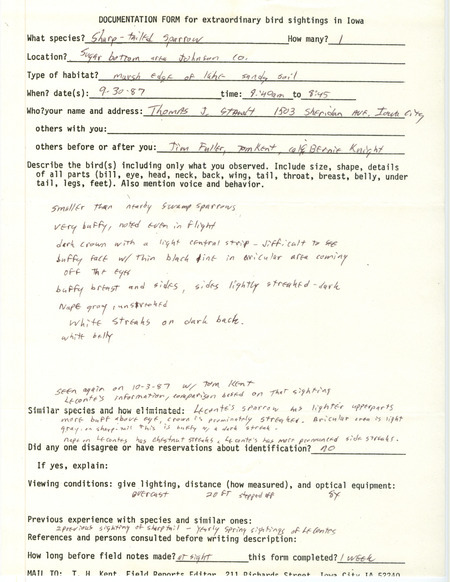 DOCUMENTATION FORM for extraordinary bird sightings in Iowa
What species? Sharp-tailed Sparrow How many? 1
Location? Sugar bottom area Johnson Co.
Type of habitat? marsh edge of lake sandy soil
When? date(s): 9-30-87 time: 8:40am to 8:45
Who? your name and address: Thomas J. Staudt 1503 Sheridan Ave, Iowa City
others with you:
others before or after you: Jim Fuller, Tom Kent, Bernie Knight
Describe the bird(s) including only what you observed. Include size, shape, details
of all parts (bill, eye, head, neck, back, wing, tail, throat, breast, belly, under
tail, legs, feet). Also mention voice and behavior.
smaller than nearby swamp sparrows
very buffy, noted even in flight
dark crown with a light central strip - difficult to see
buffy face w/ thin black line in auricular area coming
off the eyes
buffy breast and sides, sides lightly streaked - dark
Nape gray, unstreaked
White streaks on dark back.
white belly
seen again on 10-3-87 w/ Tom Kent
LeConte's information, comparison based on that sighting
Similar species and how eliminated: LeConte's sparrow has lighter upperparts
more buff above eye, crown is prominately streaked. Auricular area is light
gray. on sharp-tail this is buffy w/ a dark streak.
nape on LeContes has chestnut streaks. LeConte's has more pronounced side streaks.
Did any one disagree or have reservations about identification? no
If yes, explain:
Viewing conditions: give lighting, distance (how measured), and optical equipment:
overcast 20 ft stepped off 8x
Previous experience with species and similar ones:
2 previous sighting of sharptail - yearly spring sightings of LeContes
References and persons consulted before writing description:
How long before field notes made? at sight this form completed? 1 week
MAIL TO: T. H. Kent, Field Reports Editor, 211 Richards Street, Iowa City IA 52240